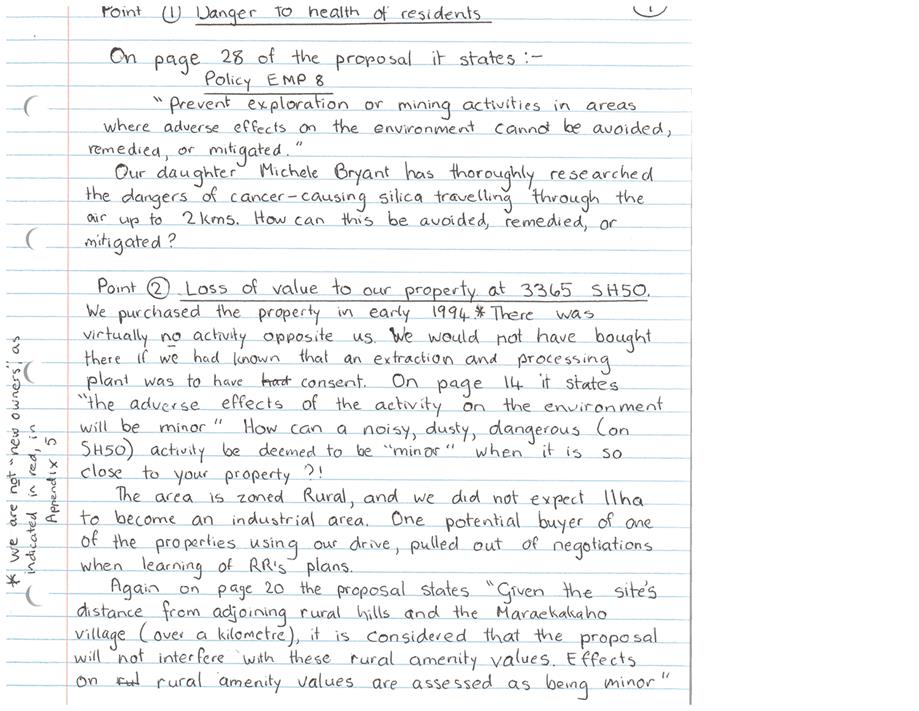 Point ① Danger to health of residents
①
On page 28 of the proposal it states :-
Policy EMP 8
"Prevent exploration or mining activities in areas
where adverse effects on the environment cannot be avoided,
remedied, or mitigated."
Our daughter Michele Bryant has thoroughly researched
the dangers of cancer-causing silica travelling through the
air up to 2kms. How can this be avoided, remedied, or
mitigated?
Point ② Loss of value to our property at 3365 SH50.
We purchased the property in early 1994.* There was
virtually no activity opposite us. We would not have bought
there if we had known that an extraction and processing
plant was to have had consent. On page 14 it states
"the adverse effects of the activity on the environment
will be minor" How can a noisy, dusty, dangerous (on
SH50) activity be deemed to be "minor" when it is so
close to your property ?!
The area is zoned Rural, and we did not expect 11ha
to become an industrial area. One potential buyer of one
of the properties using our drive, pulled out of negotiations
when learning of RR's plans.
Again on page 20 the proposal states "Given the site's
distance from adjoining rural hills and the Maraekakaho
village (over a kilometre), it is considered that the proposal
will not interfere with these rural amenity values. Effects
on rural amenity values are assessed as being minor"
* We are not "new owners" as
indicated in red, in
Appendix 5